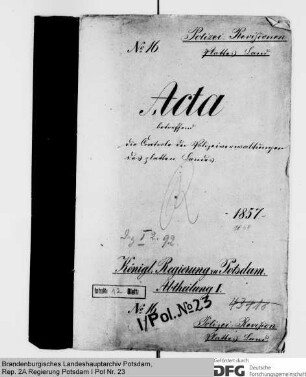 Polizei-Revisionen
No 16
plattes Land
Acta
betreffend
die Controle der Polizeiverwaltungen
des platten Landes
R
1857
I 2. 92
Königl. Regierung zu Potsdam.
Abtheilung I.
No 16
I/Pol. No. 23
Polizei-Revision
plattes Land
Brandenburgisches Landeshauptarchiv Potsdam,
Rep. 2A Regierung Potsdam I Pol Nr. 23
Gefördert durch
DFG Deutsche
Forschungsgemeinschaft